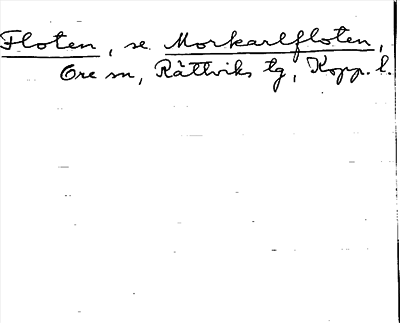 Floten, se Morkarlfloten,
Ore sn, Rättviks tg, Kopp. l.